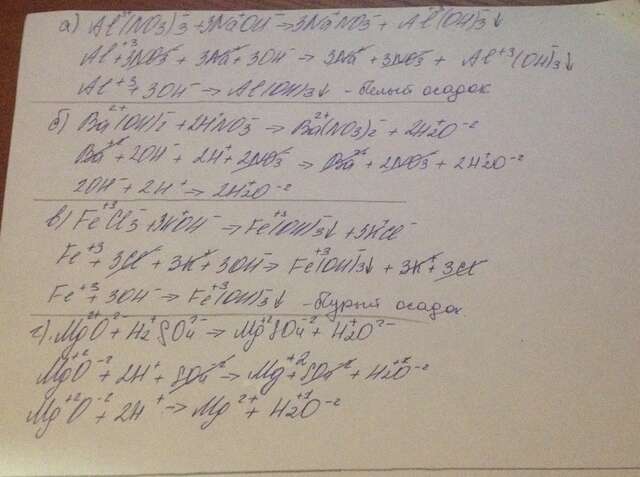 а) Al³⁺(NO3)₃⁻ + 3Na⁺OH⁻ → 3Na⁺NO3⁻ + Al³⁺(OH)₃⁻↓
Al⁺³ + 3NO3⁻ + 3Na⁺ + 3OH⁻ → 3Na⁺ + 3NO3⁻ + Al⁺³(OH)₃⁻↓
Al⁺³ + 3OH⁻ → Al(OH)3↓ - белый осадок
б) Ba²⁺(OH)₂⁻ + 2H⁺NO3⁻ → Ba²⁺(NO3)₂⁻ + 2H2⁺O⁻²
Ba⁺² + 2OH⁻ + 2H⁺ + 2NO3⁻ → Ba⁺² + 2NO3⁻ + 2H2⁺O⁻²
2OH⁻ + 2H⁺ → 2H2⁺O⁻²
в) Fe⁺³Cl₃⁻ + 3K⁺OH⁻ → Fe⁺³(OH)₃⁻↓ + 3K⁺Cl⁻
Fe⁺³ + 3Cl⁻ + 3K⁺ + 3OH⁻ → Fe⁺³(OH)₃⁻↓ + 3K⁺ + 3Cl⁻
Fe⁺³ + 3OH⁻ → Fe⁺³(OH)₃⁻↓ - бурый осадок.
г). Mg²⁺O²⁻ + H2⁺SO4²⁻ → Mg⁺²SO4⁻² + H2⁺O²⁻
Mg⁺²O⁻² + 2H⁺ + SO4⁻² → Mg⁺² + SO4⁻² + H2⁺O⁻²
Mg⁺²O⁻² + 2H⁺ → Mg²⁺ + H2⁺¹O⁻²